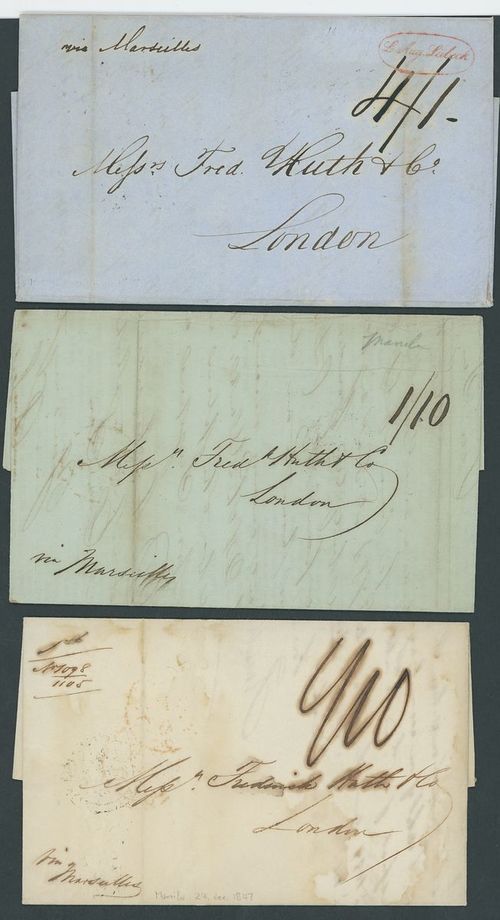 via Marseilles
4/1-
Messrs Fred. Huth & Co.
London
Manila
1/10
Messrs Fredk Huth & Co
London
via Marseilles
Nr 1098
1105
1/10
Messrs Frederick Huth & Co
London
Via
Marseilles
Manila 24. Dec. 1847